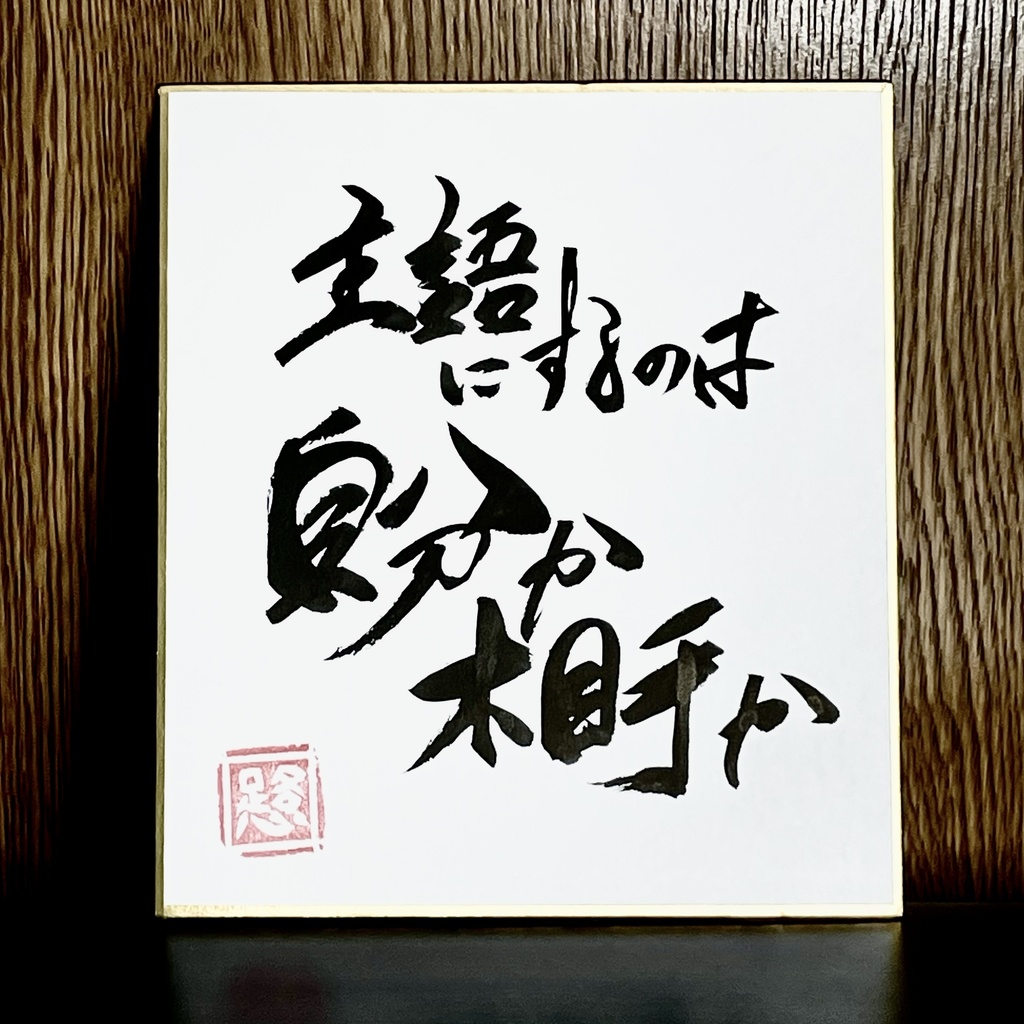 主語にするのは
自分か
相手か